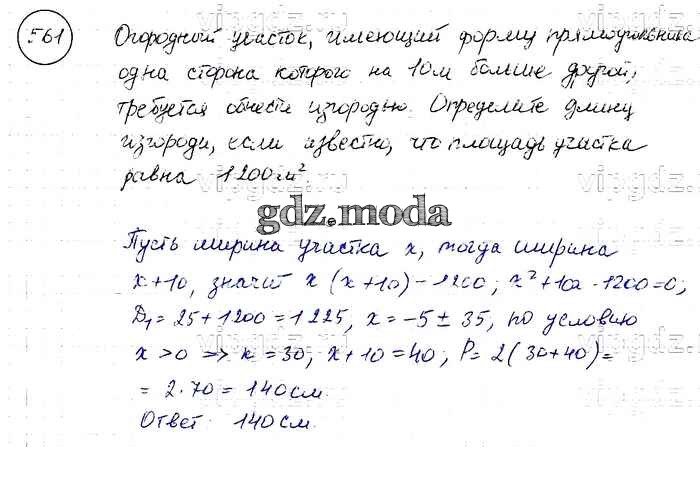 561
Огородный участок, имеющий форму прямоугольника
одна сторона которого на 10м больше другой,
требуется обнести изгородью. Определите длину
изгороди, если известно, что площадь участка
равна 1200 м².
gdz.moda
Пусть ширина участка x, тогда ширина
x+10, значит x (x+10) - 1200; x² + 10x - 1200 = 0;
D₁ = 25 + 1200 = 1225, x = -5 ± 35, по условию
x > 0 => x = 30, x + 10 = 40; P = 2 (30 + 40) =
= 2 · 70 = 140 см.
Ответ 140 см.